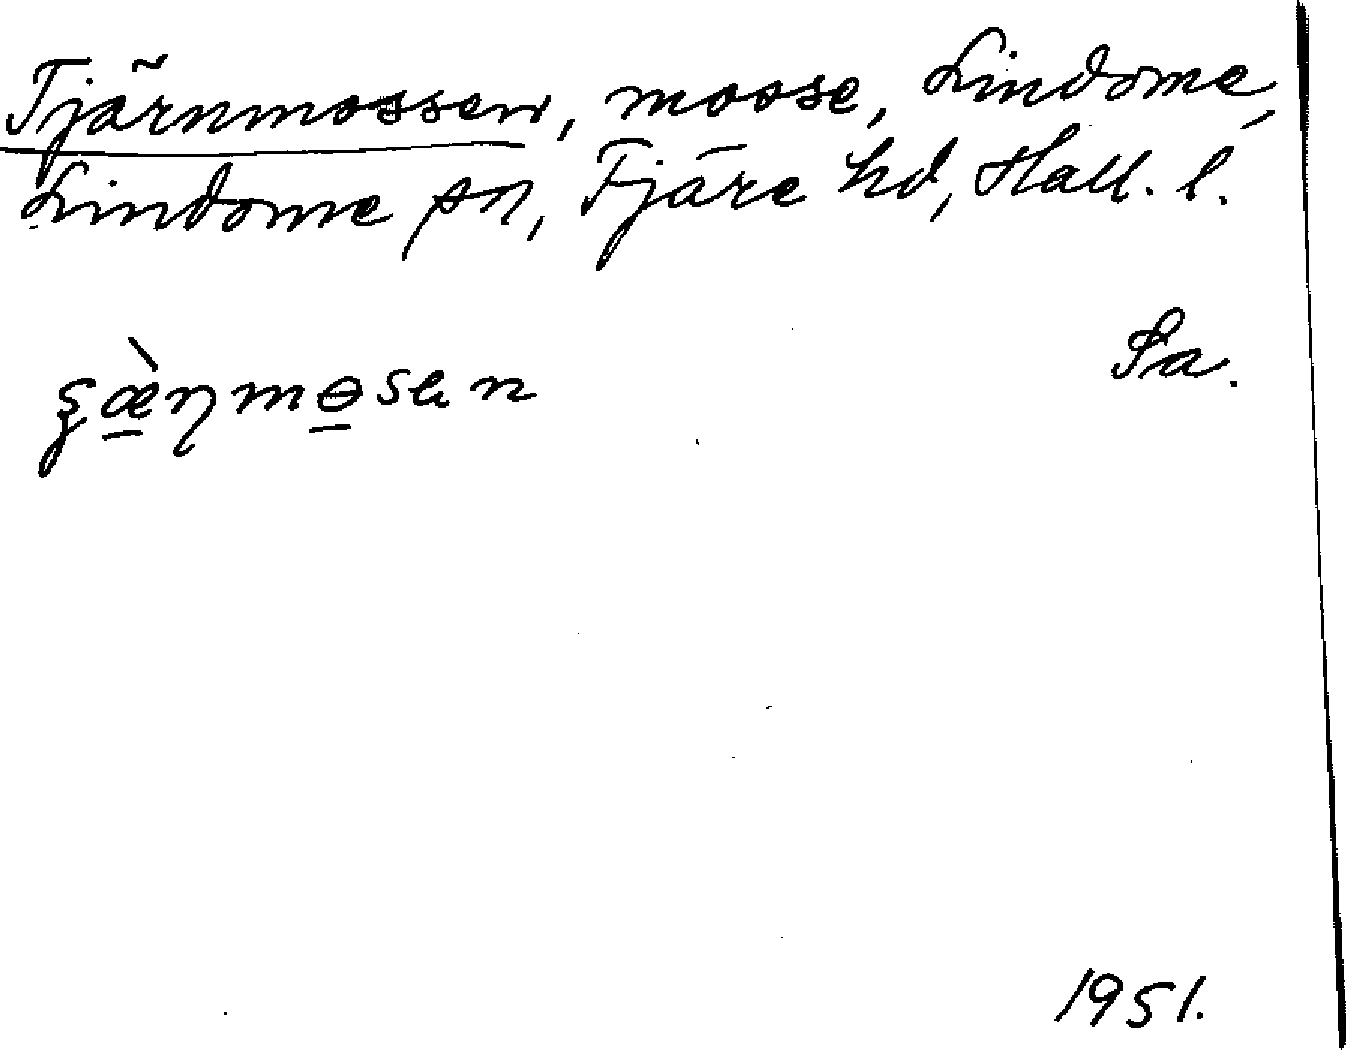 Tjärnmossen, mosse, Lindome,
Lindome sn, Fjäre hd, Hall. l.
Sa.
1951.